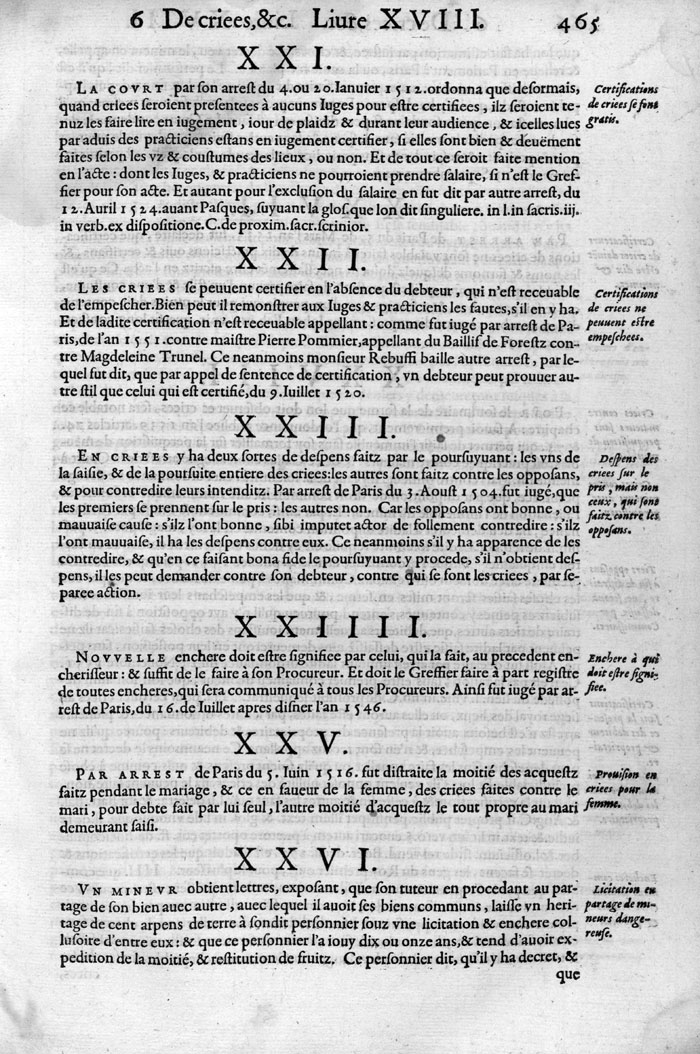 6 De criees, &c. Liure XVIII. 465
XXI.
LA COVRT par son arrest du 4. ou 20. Ianuier 1512. ordonna que desormais,
quand criees seroient presentees à aucuns Iuges pour estre certifiees, ilz seroient te-
nuz les faire lire en iugement, iour de plaidz & durant leur audience, & icelles lues
par aduis des practiciens estans en iugement certifier, si elles sont bien & deuëment
faites selon les vz & coustumes des lieux, ou non. Et de tout ce seroit faite mention
en l'acte: dont les Iuges, & practiciens ne pourroient prendre salaire, si n'est le Gref-
fier pour son acte. Et autant pour l'exclusion du salaire en fut dit par autre arrest, du
12. Auril 1524. auant Pasques, suyuant la glos. que lon dit singuliere. in l. in sacris. iij.
in verb. ex dispositione. C. de proxim. sacr. scrinior.
Certifications
de criees se font
gratis.
XXII.
LES CRIEES se peuuent certifier en l'absence du debteur, qui n'est receuable
de l'empescher. Bien peut il remonstrer aux Iuges & practiciens les fautes, s'il en y ha.
Et de ladite certification n'est receuable appellant: comme fut iugé par arrest de Pa-
ris, de l'an 1551. contre maistre Pierre Pommier, appellant du Baillif de Forestz con-
tre Magdeleine Trunel. Ce neanmoins monsieur Rebuffi baille autre arrest, par le-
quel fut dit, que par appel de sentence de certification, vn debteur peut prouuer au-
tre stil que celui qui est certifié, du 9. Iuillet 1520.
Certifications
de criees ne
peuuent estre
empeschees.
XXIII.
EN CRIEES y ha deux sortes de despens faitz par le poursuyuant: les vns de
la saisie, & de la poursuite entiere des criees: les autres sont faitz contre les opposans,
& pour contredire leurs intenditz. Par arrest de Paris du 3. Aoust 1504. fut iugé, que
les premiers se prennent sur le pris: les autres non. Car les opposans ont bonne, ou
mauuaise cause: s'ilz l'ont bonne, sibi imputet actor de follement contredire: s'ilz
l'ont mauuaise, il ha les despens contre eux. Ce neanmoins s'il y ha apparence de les
contredire, & qu'en ce faisant bona fide le poursuyuant y procede, s'il n'obtient des-
pens, il les peut demander contre son debteur, contre qui se font les criees, par se-
paree action.
Despens des
criees sur le
pris, mais non
ceux, qui sont
faitz contre les
opposans.
XXIIII.
NOVVELLE enchere doit estre signifiee par celui, qui la fait, au precedent en-
cherisseur: & suffit de le faire à son Procureur. Et doit le Greffier faire à part registre
de toutes encheres, qui sera communiqué à tous les Procureurs. Ainsi fut iugé par ar-
rest de Paris, du 16. de Iuillet apres disner l'an 1546.
Enchere à qui
doit estre signi-
fiee.
XXV.
PAR ARREST de Paris du 5. Iuin 1516. fut distraite la moitié des acquestz
faitz pendant le mariage, & ce en faueur de la femme, des criees faites contre le
mari, pour debte fait par lui seul, l'autre moitié d'acquestz le tout propre au mari
demeurant saisi.
Prouision en
criees pour la
femme.
XXVI.
VN MINEVR obtient lettres, exposant, que son tuteur en procedant au par-
tage de son bien auec autre, auec lequel il auoit ses biens communs, laisse vn heri-
tage de cent arpens de terre à sondit personnier souz vne licitation & enchere col-
lusoire d'entre eux: & que ce personnier l'a iouy dix ou onze ans, & tend d'auoir ex-
pedition de la moitié, & restitution de fruitz. Ce personnier dit, qu'il y ha decret, &
que
Licitation en
partage de mi-
neurs dange-
reuse.